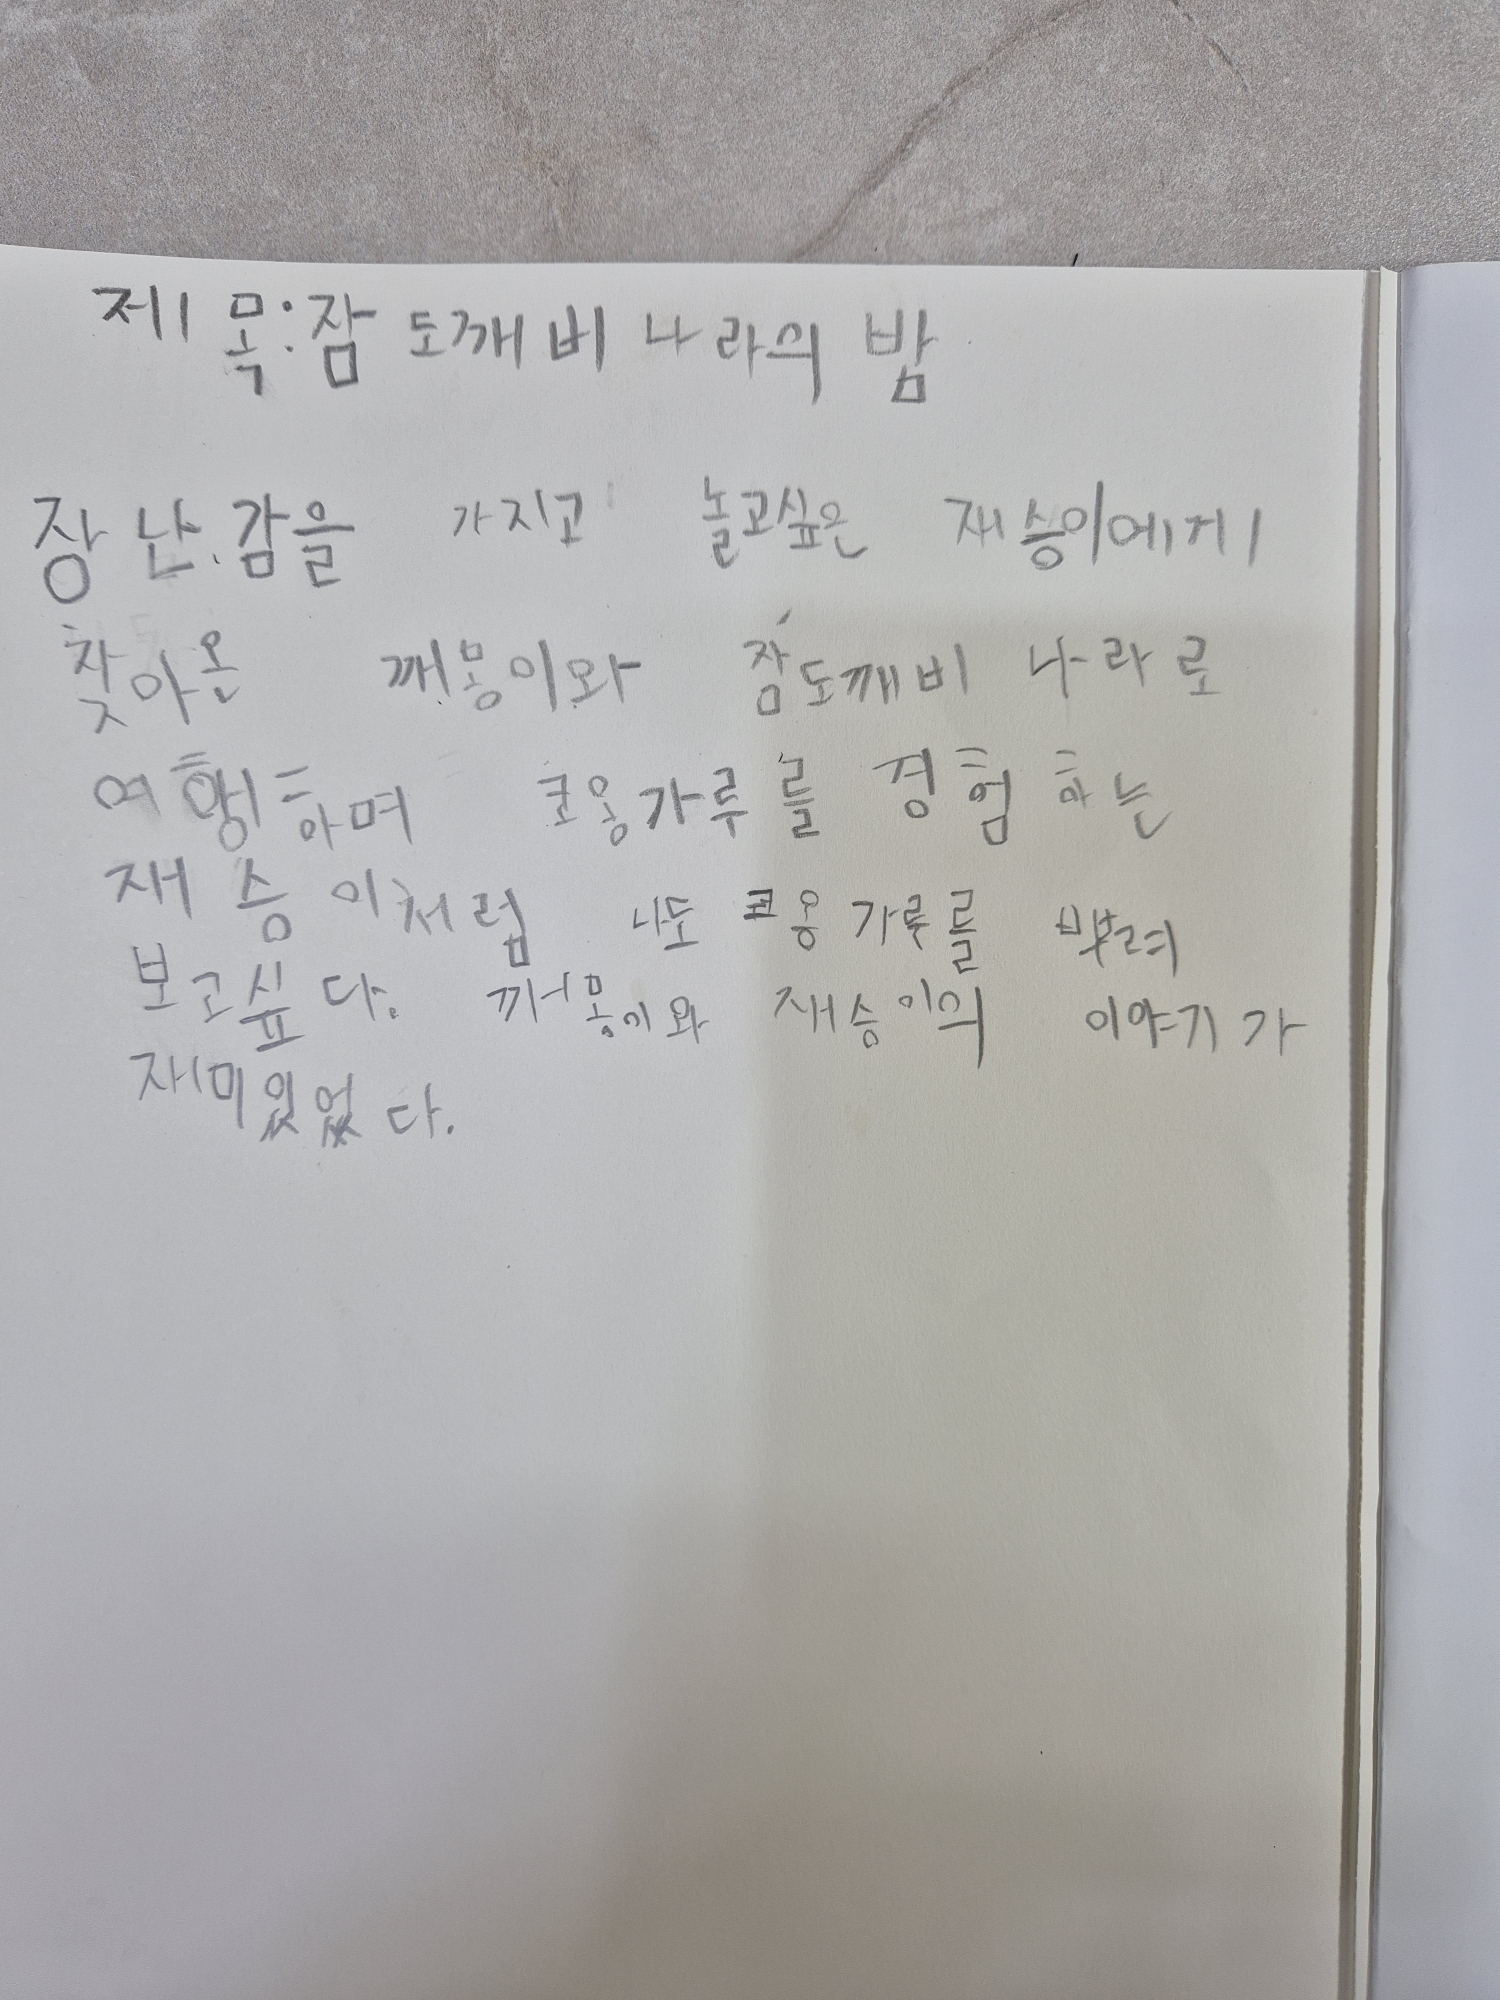 제목:잠 도깨비 나라의 밤
장난감을 가지고 놀고싶은 재승이에게
찾아온 깨몽이와 잠도깨비 나라로
여행하며 코옹가루를 경험하는
재승이처럼 나도 코옹가루를 뿌려
보고싶다. 깨몽이와 재승이의 이야기가
재미있었다.